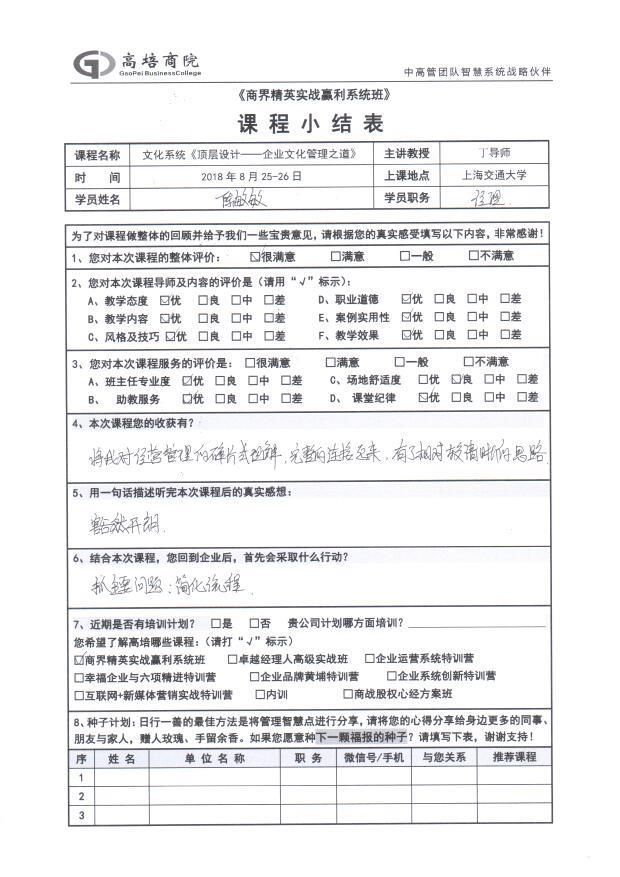 高培商院
GaoPei BusinessCollege
中高管团队智慧系统战略伙伴
《商界精英实战赢利系统班》
课程小结表
课程名称 文化系统《顶层设计——企业文化管理之道》 主讲教授 丁导师
时 间 2018年8月25-26日 上课地点 上海交通大学
学员姓名 敏敏 学员职务 经理
为了对课程做整体的回顾并给予我们一些宝贵意见,请根据您的真实感受填写以下内容,非常感谢!
1、您对本次课程的整体评价: ☑很满意 □满意 □一般 □不满意
2、您对本次课程导师及内容的评价是(请用“√”标示):
A、教学态度 ☑优 □良 □中 □差 D、职业道德 ☑优 □良 □中 □差
B、教学内容 ☑优 □良 □中 □差 E、案例实用性 ☑优 □良 □中 □差
C、风格及技巧 ☑优 □良 □中 □差 F、教学效果 ☑优 □良 □中 □差
3、您对本次课程服务的评价是: □很满意 □满意 □一般 □不满意
A、班主任专业度 ☑优 □良 □中 □差 C、场地舒适度 □优 ☑良 □中 □差
B、 助教服务 ☑优 □良 □中 □差 D、 课堂纪律 ☑优 □良 □中 □差
4、本次课程您的收获有?
将我对经营管理的碎片式理解,完整的连接起来,有了相对较清晰的思路.
5、用一句话描述听完本次课程后的真实感想:
豁然开朗.
6、结合本次课程,您回到企业后,首先会采取什么行动?
抓主要问题;简化流程.
7、近期是否有培训计划? □是 □否 贵公司计划哪方面培训?
您希望了解高培哪些课程:(请打“√”标示)
☑商界精英实战赢利系统班 □卓越经理人高级实战班 □企业运营系统特训营
□幸福企业与六项精进特训营 □企业品牌黄埔特训营 □企业系统创新特训营
□互联网+新媒体营销实战特训营 □内训 □商战股权心经方案班
8、种子计划:日行一善的最佳方法是将管理智慧点进行分享,请将您的心得分享给身边更多的同事、
朋友与家人,赠人玫瑰、手留余香。如果您愿意种下一颗福报的种子?请填写下表,谢谢支持!
序 姓 名 单 位 名 称 职 务 微信号/手机 与您关系 推荐课程
1
2
3